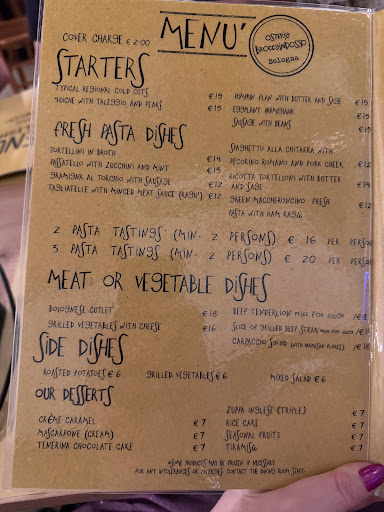 COVER CHARGE € 2.00
MENU'
OSTERIA
BROCCAINDOSSO
BOLOGNA
STARTERS
TYPICAL REGIONAL COLD CUTS € 15
QUICHE WITH TALEGGIO AND PEARS € 15
PUMPKIN FLAN WITH BUTTER AND SAGE € 15
EGGPLANT PARMIGIANA € 15
SAUSAGE WITH BEANS € 15
FRESH PASTA DISHES
TORTELLINI IN BROTH € 14
PASSATELLO WITH ZUCCHINI AND MINT € 15
GRAMIGNA AL TORCHIO WITH SAUSAGE € 12
TAGLIATELLE WITH MINCED MEAT SAUCE (RAGU') € 12
SPAGHETTO ALLA CHITARRA WITH
PECORINO ROMANO AND PORK CHEEK € 12
RICOTTA TORTELLONI WITH BUTTER
AND SAGE € 14
GREEN MACCHERONCINO FRESH € 12
PASTA WITH HAM RAGÙ
2 PASTA TASTINGS (MIN. 2 PERSONS) € 16 PER PERSON
3 PASTA TASTINGS (MIN. 2 PERSONS) € 20 PER PERSON
MEAT OR VEGETABLE DISHES
BOLOGNESE CUTLET € 18
GRILLED VEGETABLES WITH CHEESE € 16
BEEF TENDERLION PRICE FOR 100GR /€ 8
SLICE OF GRILLED BEEF STEAK PRICE FOR 100GR /€ 8
CARPACCIO SALAD (WITH PARMESAN FLAKES) /€ 8
SIDE DISHES
ROASTED POTATOES € 6 GRILLED VEGETABLES € 6 MIXED SALAD € 6
OUR DESSERTS
CRÈME CARAMEL € 7
MASCARPONE (CREAM) € 7
TENERINA CHOCOLATE CAKE € 7
ZUPPA INGLESE (TRIFLE) € 7
RICE CAKE € 7
SEASONAL FRUITS € 7
TIRAMISÙ € 7
*SOME PRODUCTS MAY BE FROZEN IF NECESSARY
FOR ANY INTOLERANCES OR ALLERGIES CONTACT THE DINING ROOM STAFF.